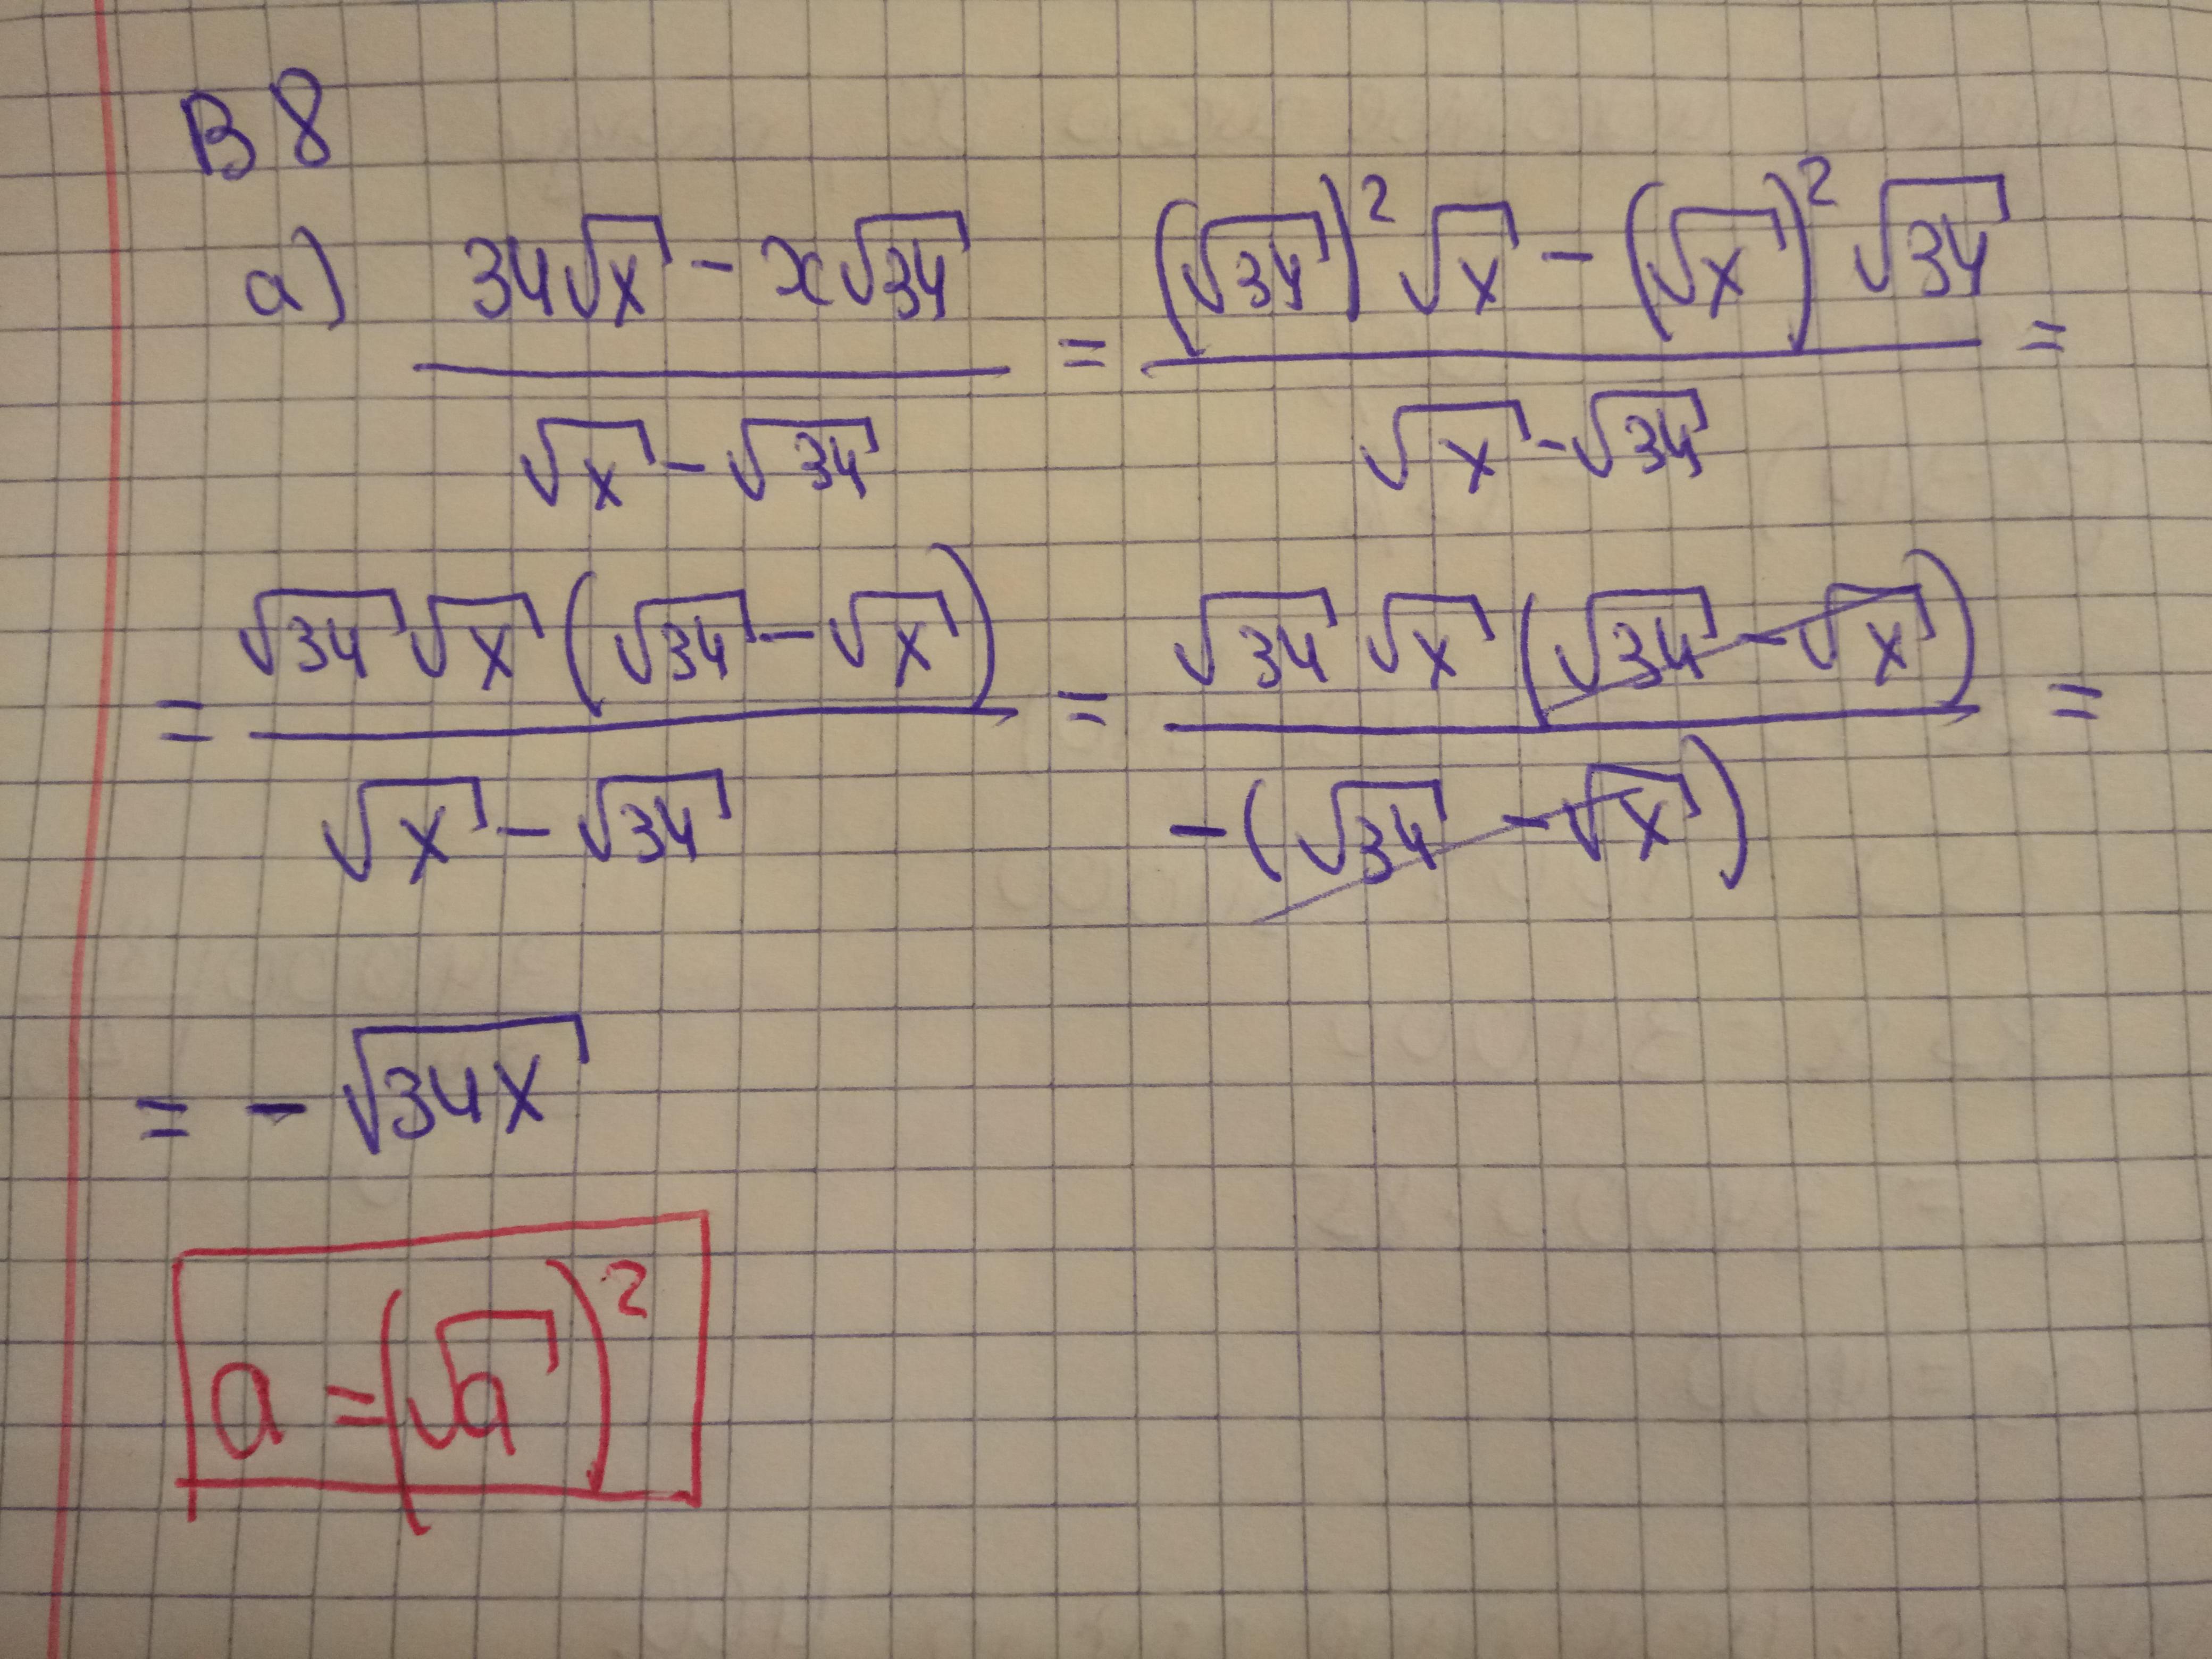 В 8
а) (34√x - x√34)/(√x - √34) = ((√34)²√x - (√x)²√34)/(√x - √34) =
= (√34√x(√34 - √x))/(√x - √34) = (√34√x(√34 - √x))/(-(√34 - √x)) =
= - √34x
a = (√a)²